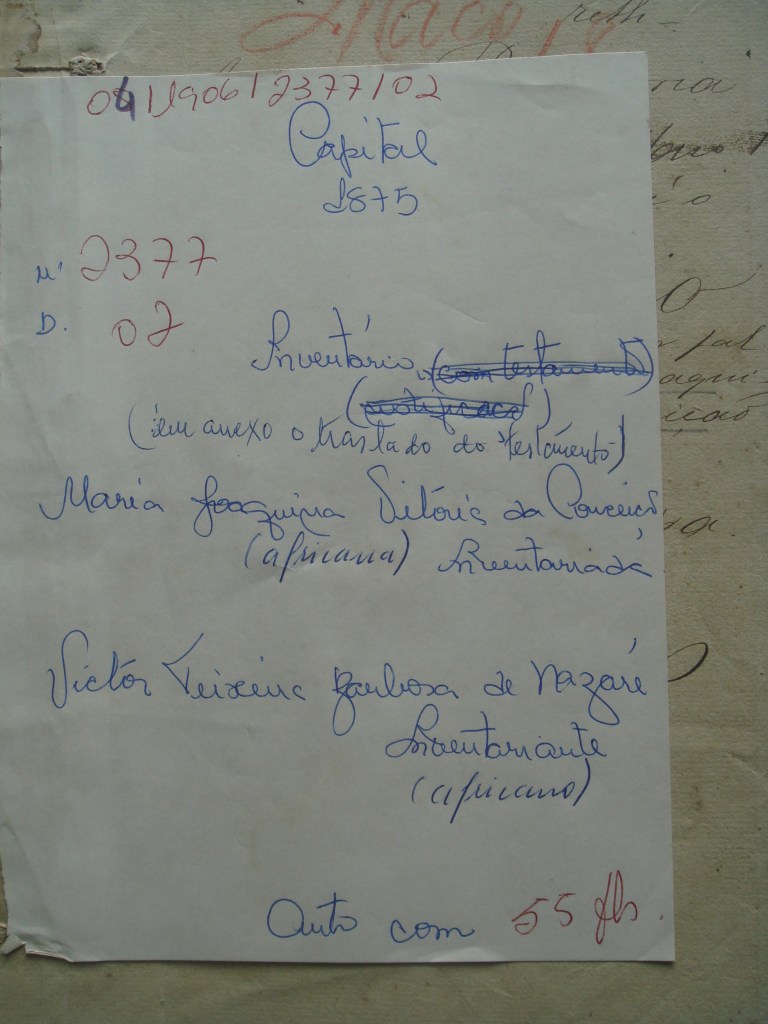 Maço
04/1906/2377/02
Capital
1875
Nº 2377
D. 02
Inventário (com testamento)
(notificacã)
(em anexo o traslado do testamento)
Maria Joaquina Vitória da Conceição
(africana) Inventariada
Victór Teixeira Barbosa de Nazaré
Inventariante
(africano)
Auto com 55 fls.